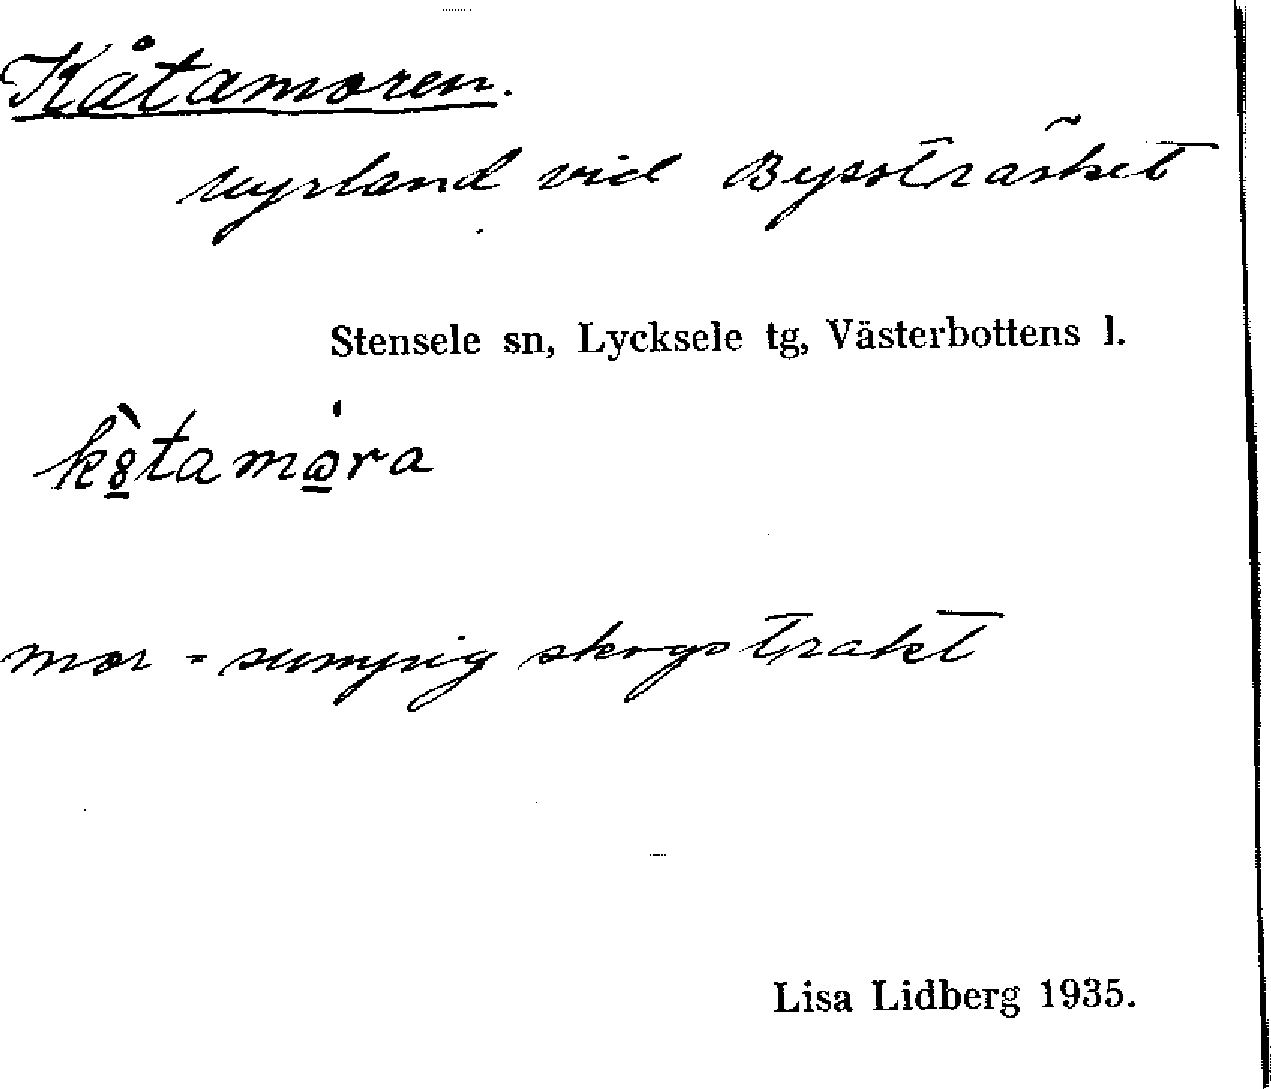 Kåtamoren.
Myrland vid Byssträsket
Stensele sn, Lycksele tg, Västerbottens l.
k8̱̀tamω̱̍ra
mor - sumpig skogstrakt
Lisa Lidberg 1935.